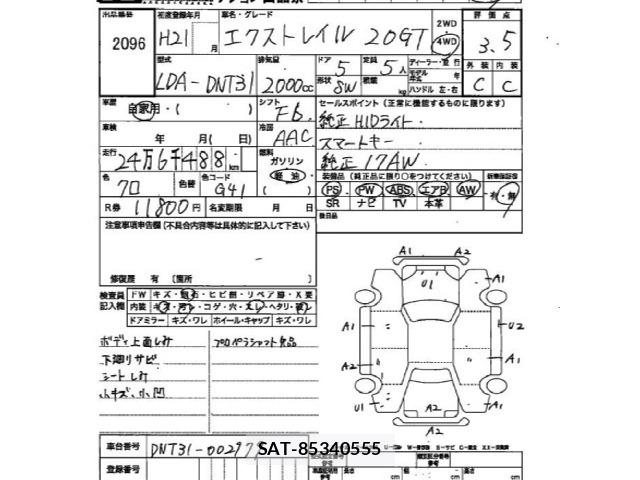 出品番号 初度登録年月 車名・グレード 2WD 評価点
2096 H21 月 エクストレイル 20GT 4WD 3.5
型式 排気量 ドア 定員 ディーラー・並行 外装 内装
LDA-DNT31 2000cc 5 5人 モデル年式 年 C C
形状 SW 積載 kg ハンドル 左・右
車歴 自家用・( ) シフト F6 セールスポイント(正常に機能するものに限ります)
純正HIDライト
車検 年 月(日) 冷房 AAC スマートキー
走行 24万6千488km 燃料 ガソリン 軽油 純正17AW
色 クロ 色替 色コード G41 ( ) 装備品(純正品に限り○をつけてください) 新車保証書
PS PW ABS エアB AW 有・無
SR ナビ TV 本革
R券 11800円 名変期限 月 日 後日品
注意事項申告欄(不具合内容等は具体的に記入して下さい)
修復歴 有 〔箇所 〕
検査員記入欄 FW キズ・飛石・ヒビ割・リペア跡・X要
内装 キズ・汚れ・コゲ・穴・スレ・ヘタリ・破れ
ドアミラー キズ・ワレ ホイール・キャップ キズ・ワレ
ボディ上面しみ プロペラシャフト欠品
下廻りサビ
シートしみ
小キズ、小凹
A1 A2
A1 U1 A1
A1 U2
A2 A1
U1 A2 A1
A2
車台番号 DNT31-00297
SAT-85340555
登録番号